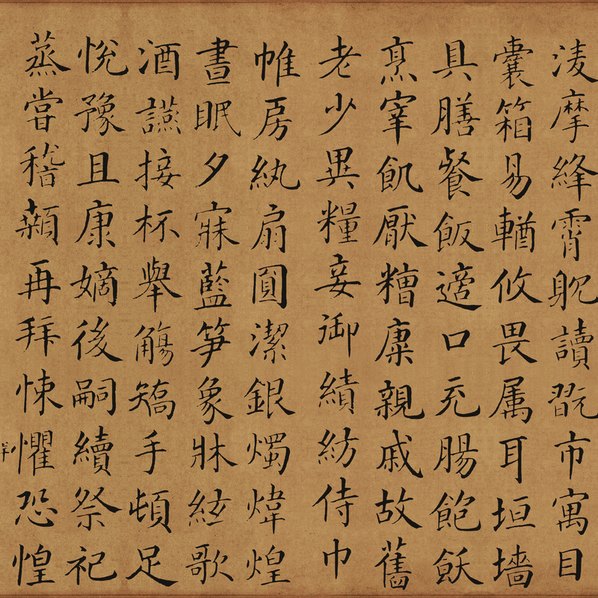 淩摩絳霄耽讀翫市寓目
囊箱易輶攸畏属耳垣墻
具膳餐飯適口充腸飽飫
烹宰飢厭糟糠親戚故舊
老少異糧妾御績紡侍巾
帷房紈扇圓潔銀燭煒煌
晝眠夕寐藍笋象牀絃歌
酒讌接杯舉觴矯手頓足
悅豫且康嫡後嗣續祭祀
蒸嘗稽顙再拜悚懼恐惶